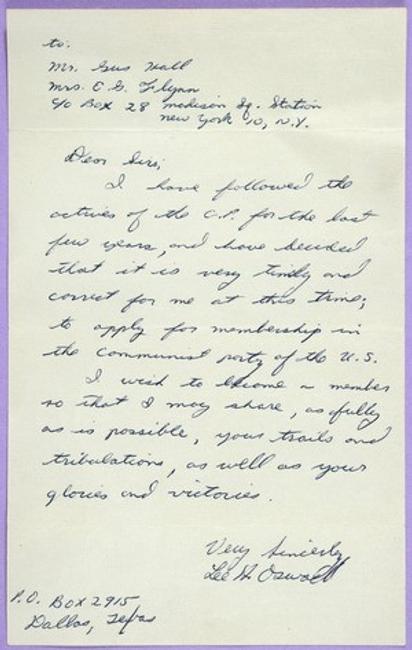 to:
Mr. Gus Hall
Mrs. E G. Flynn
c/o Box 28 Madison Sq. Station
New York 10, N.Y.
Dear Sirs;
I have followed the
actives of the C.P. for the last
few years, and have decided
that it is very timely and
correct for me at this time;
to apply for membership in
the Communist party of the U.S.
I wish to become a member
so that I may share, as fully
as is possible, your trails and
tribulations, as well as your
glories and victories.
Very Sincerely
Lee H. Oswald
P.O. Box 2915
Dallas, Texas